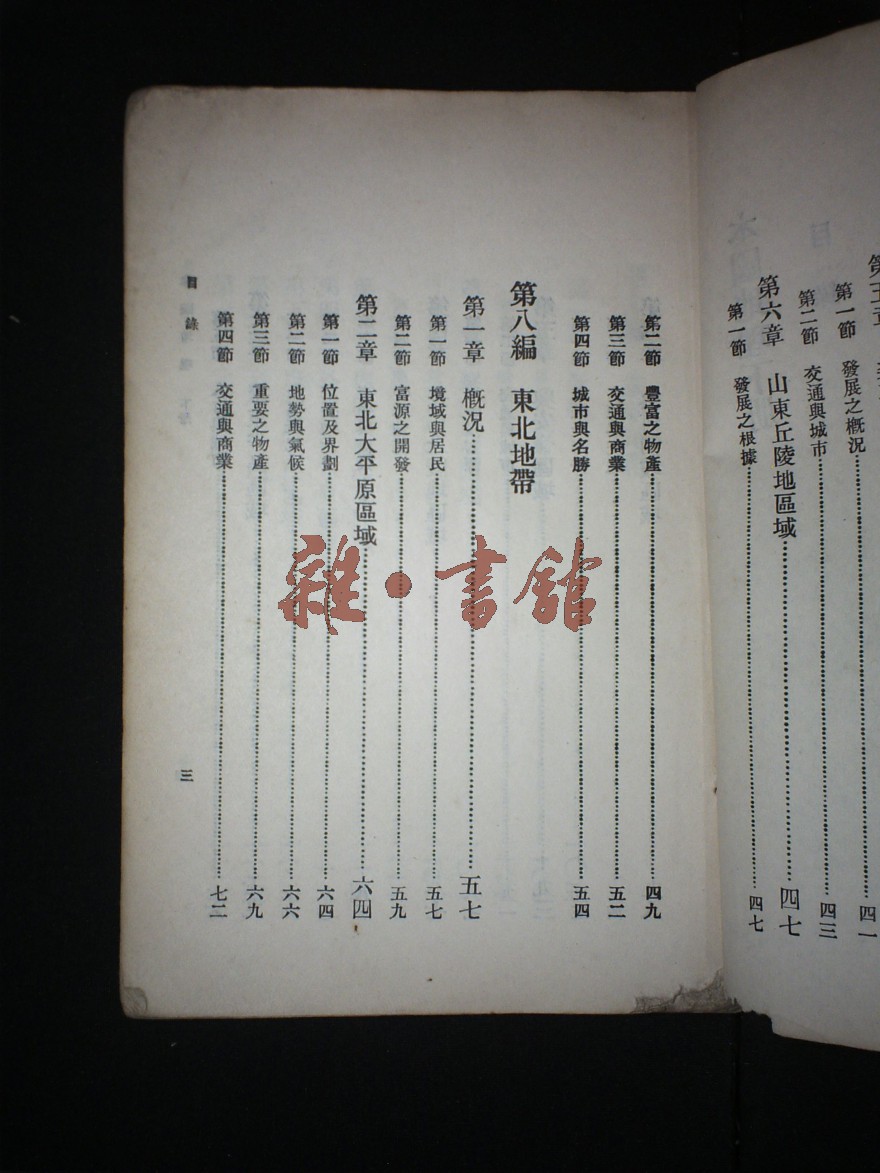 第一節 發展之概況 四一
第二節 交通與城市 四三
第六章 山東丘陵地區域 四七
第一節 發展之根據 四七
第二節 豐富之物產 四九
第三節 交通與商業 五二
第四節 城市與名勝 五四
第八編 東北地帶
第一章 概況 五七
第一節 境域與居民 五七
第二節 富源之開發 五九
第二章 東北大平原區域 六四
第一節 位置及界劃 六四
第二節 地勢與氣候 六六
第三節 重要之物產 六九
第四節 交通與商業 七二
目錄 三
雜·書館